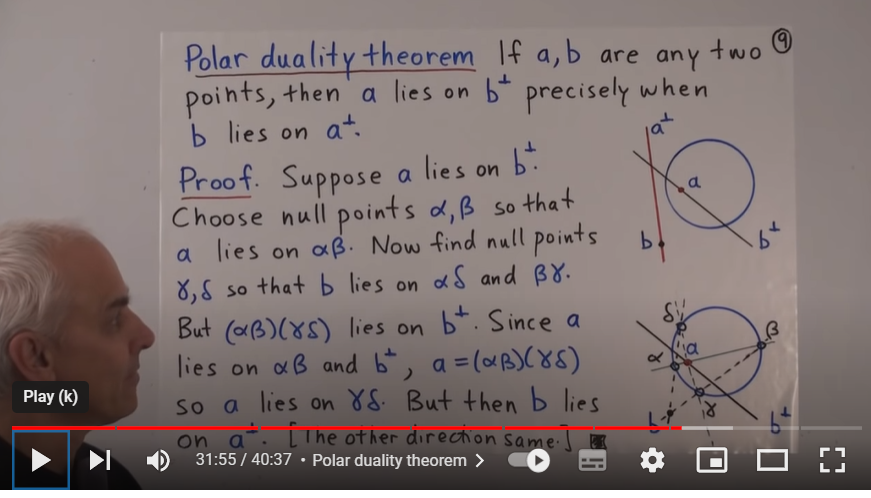 Polar duality theorem If a, b are any two ⑨
points, then a lies on b⊥ precisely when
b lies on a⊥.
Proof. Suppose a lies on b⊥.
Choose null points α, β so that
a lies on αβ. Now find null points
γ, δ so that b lies on αδ and βγ.
But (αβ)(γδ) lies on b⊥. Since a
lies on αβ and b⊥, a = (αβ)(γδ)
so a lies on γδ. But then b lies
on a⊥. [The other direction same.]
a⊥
a
b
b⊥
δ
β
α
a
γ
b
b⊥
Play (k)
31:55 / 40:37 • Polar duality theorem